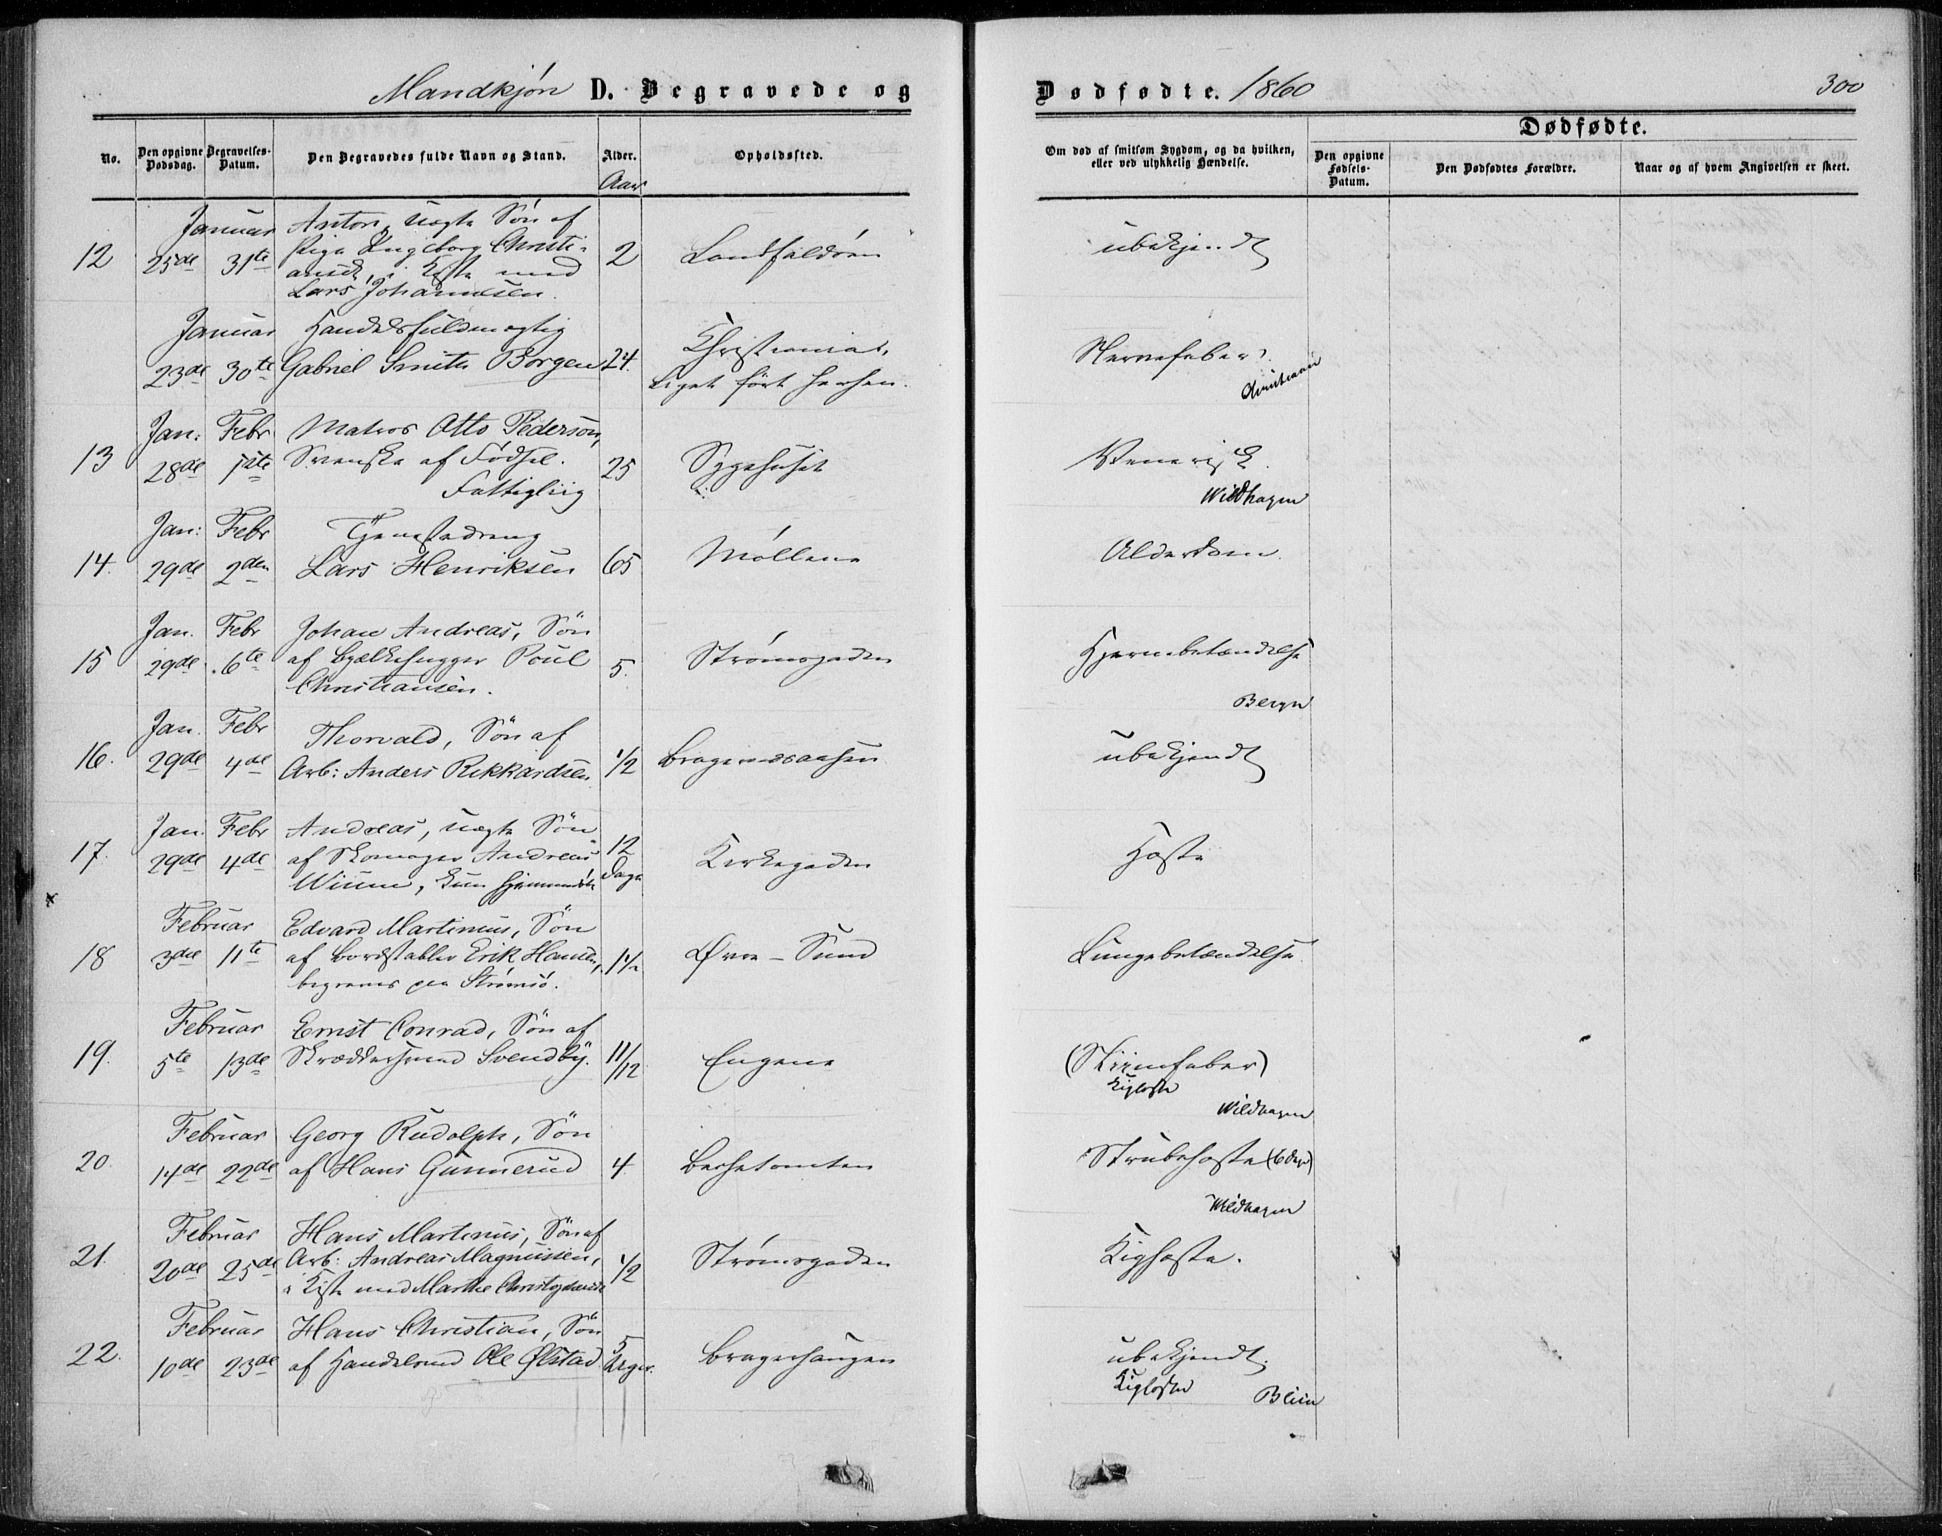 Mandkjøn D. Begravede og
Dødfødte. 1860
300
No.
Den opgivne Dødsdag.
Begravelses-Datum.
Den Begravedes fulde Navn og Stand.
Alder.
Aar
Opholdssted.
Om død af smitsom Sygdom, og da hvilken, eller ved ulykkelig Hændelse.
Dødfødte.
Den opgivne Fødsels-Datum.
Den Dødfødtes Forældre.
Naar og af hvem Angivelsen er skeet.
Januar Anton, uægte Søn af
12 25de 31te Pige Ingeborg Christi- 2 Landfaldøen ubekjendt
ansd, i Kiste med
Lars Johannesen.
Januar Handelsfuldmægtig
23de 30te Gabriel Smith Borgen 24. Christiania, Nervefeber.
Liget ført herhen. Christiania
Jan: Febr Matros Otto Pederson,
13 28de 1ste Svenske af Fødsel. 25 Sygehuset Venerisk
Fattigliig Wildhagen
Jan: Febr Tjenestedreng
14. 29de 2den Lars Henriksen 65 Møllene Alderdom.
Jan. Febr Johan Andreas, Søn
15 29de 6te af Bjælkehugger Poul 5. Strømsgaden Hjernebetændelse
Christiansen. Beyer
Jan. Febr Thorvald, Søn af
16. 29de 4de Arb: Anders Rikkardsen 1/2 Bragernæsaasen ubekjendt
Jan. Febr Andreas, uægte Søn
17. 29de 4de af Skomager Andreas 12 Dage Kirkegaden Hoste
Wium, kun hjemmedøbt
Februar Edvard Martinius, Søn
18 3die 11te af Bordstabler Erik Hansen, 1 1/2 Øvre-Sund Lungebetændelse
begraves paa Strømsø.
Februar Ernst Conrad, Søn af
19. 5te 13de Skræddersvend Svendby. 11/12 Engene (Nervefeber)
Kighoste
Wildhagen
Februar Georg Rudolph, Søn
20 14de 22de af Hans Gunnerud 4. Strubehoste (6 dage)
Wildhagen
Februar Hans Martinus, Søn af
21. 20de 25de Arb: Andreas Magnussen, 1/2 Strømsgaden Kighoste.
i Kiste med Marthe
Februar Hans Christian, Søn
22. 10de 23de af Handelsmd Ole Ølstad 5 Uger. Bragerhaugen ubekjendt.
Kighoste